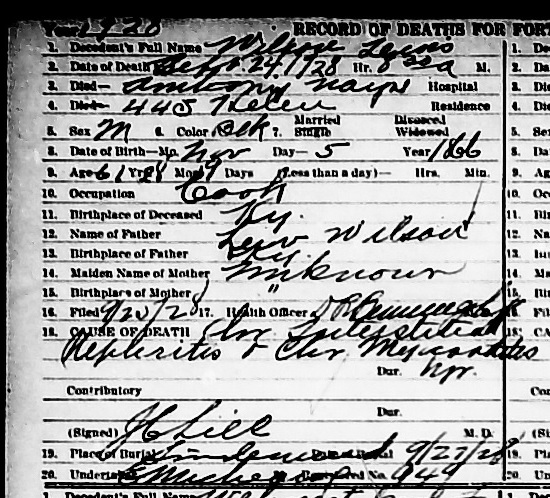 Year 1928 RECORD OF DEATHS FOR FOR
1. Decedent's Full Name Wilson Lewis
2. Date of Death Sept 24, 1928 Hr. 8 a M.
3. Died— Anthony Wayne Hospital
4. Died— 445 Helen Residence
5. Sex M 6. Color Blk 7. Married Single Divorced Widowed
8. Date of Birth—Mo. Nov Day— 5 Year 1866
9. Age 61 Yrs. Mos. Days (Less than a day)— Hrs. Min.
10. Occupation Cook
11. Birthplace of Deceased Ky.
12. Name of Father Wilson
13. Birthplace of Father Ky
14. Maiden Name of Mother Unknown
15. Birthplace of Mother "
16. Filed 9/25/28 17. Health Officer
18. CAUSE OF DEATH Chr Interstitial
Nephritis & Chr. Myocarditis
Dur.
Contributory
Dur.
(Signed) M.D.
19. Place of Burial Lindenwood 9/27/28
20. No. 949
1. Decedent's Full Name